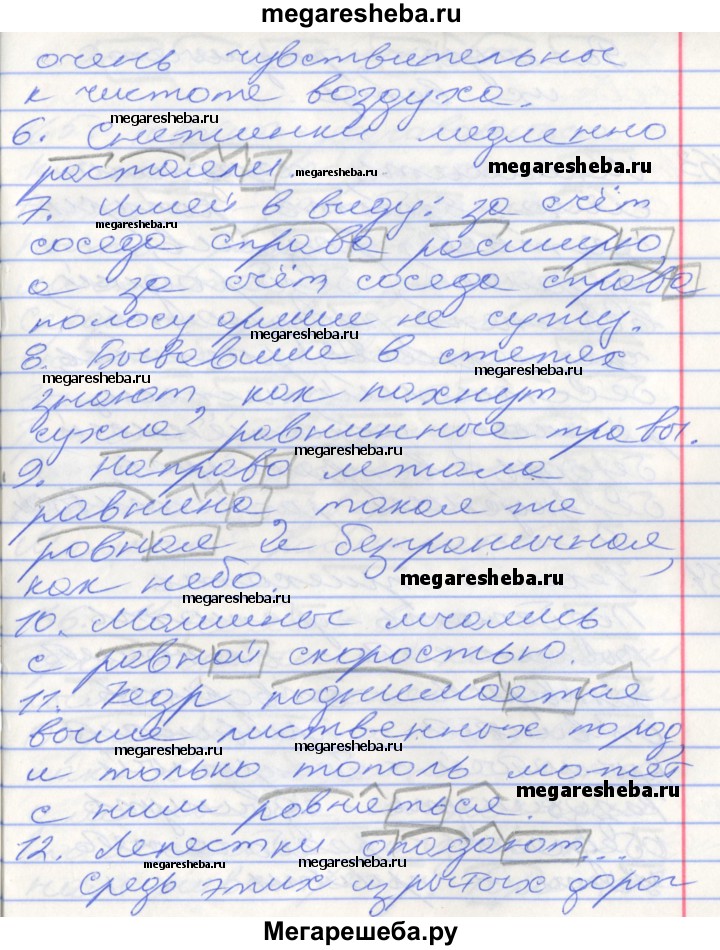 megaresheba.ru
очень чувствительны
к чистоте воздуха.
megaresheba.ru
6. Снежинки медленно
растаяли.
megaresheba.ru
megaresheba.ru
7. Имей в виду: за счёт
megaresheba.ru
соседа справа расширю,
а за счёт соседа справа
полосу армии не сужу.
megaresheba.ru
8. Бывавшие в степях
megaresheba.ru
megaresheba.ru
знают, как пахнут
сухие, равнинные травы.
megaresheba.ru
9. Направо лежала
равнина такая же
ровная и безграничная,
как небо.
megaresheba.ru
megaresheba.ru
10. Машины мчались
с равной скоростью.
11. Кедр поднимается
выше лиственных пород,
megaresheba.ru
megaresheba.ru
и только тополь может
с ним ровняться.
megaresheba.ru
12. Лепестки опадают...
megaresheba.ru
megaresheba.ru
Средь этих изрытых дорог
Мегарешеба.ру